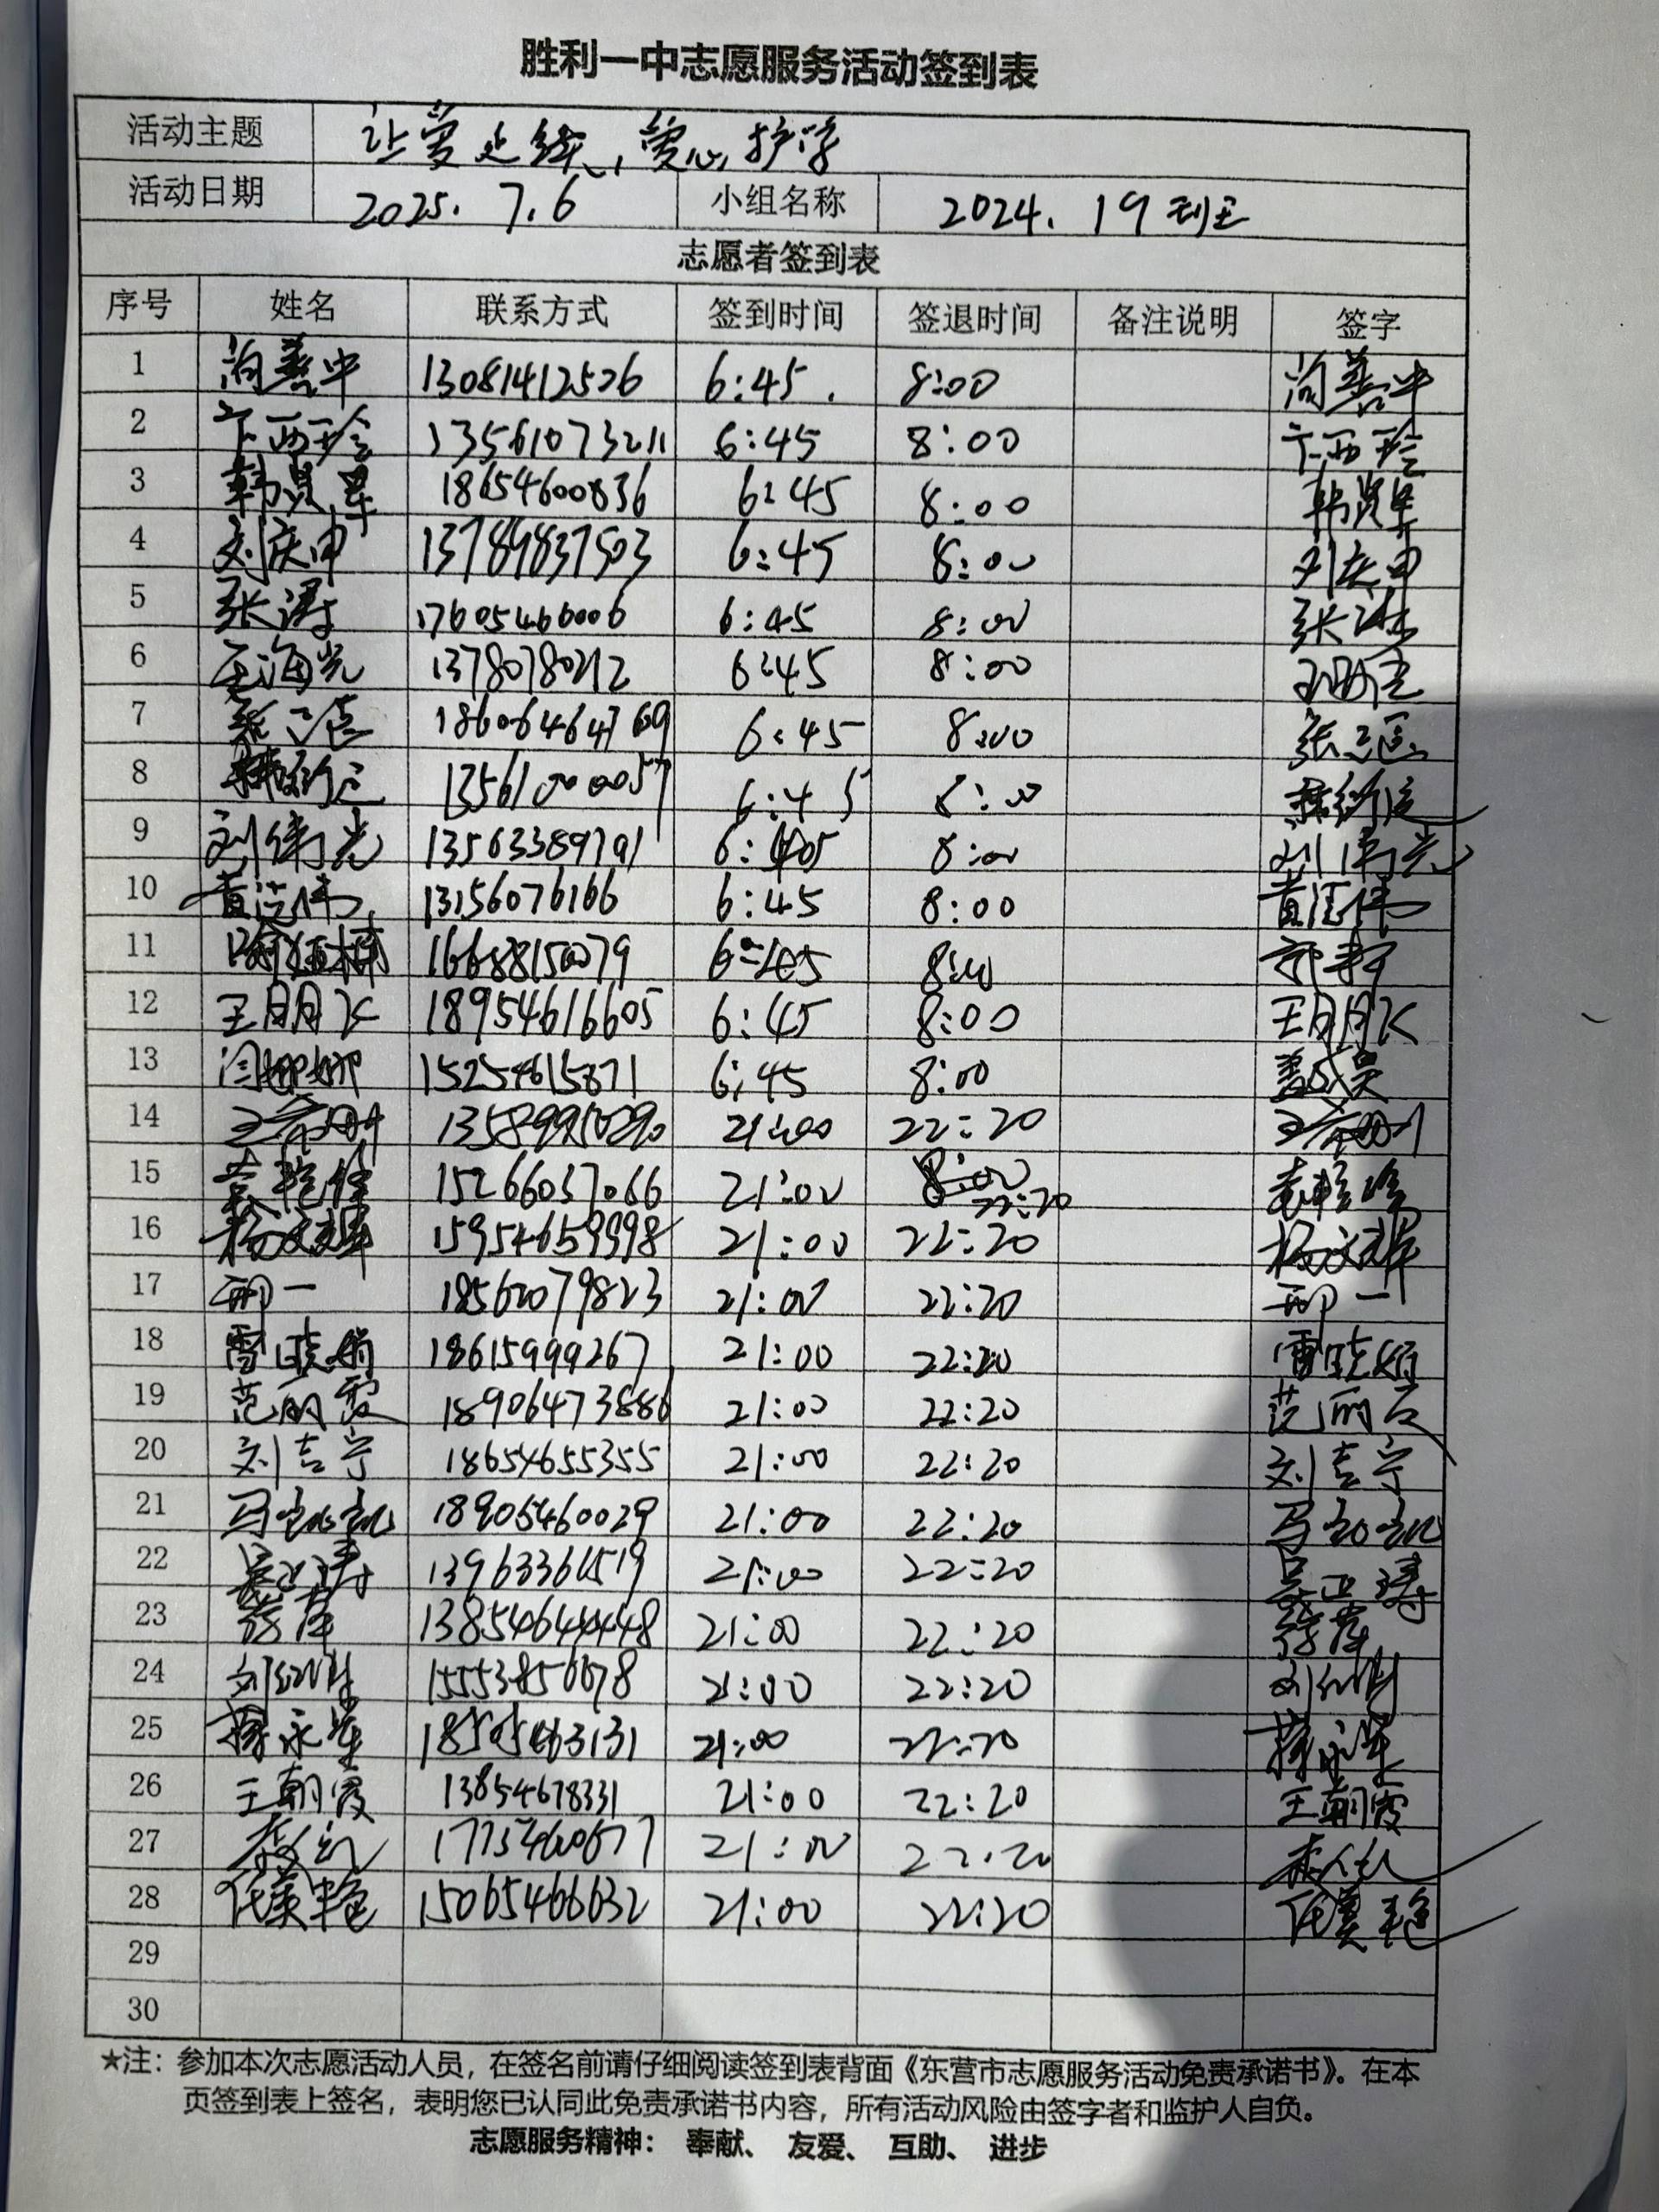 胜利一中志愿服务活动签到表
活动主题 让爱延续,爱心护学
活动日期 2025.7.6 小组名称 2024.19班
志愿者签到表
序号 姓名 联系方式 签到时间 签退时间 备注说明 签字
1 尚善中 13081412526 6:45. 8:00 尚善中
2 卞西玲 13561073211 6:45 8:00 卞西玲
3 18654600836 6:45 8:00
4 刘庆申 13789837503 6:45 8:00 刘庆申
5 张涛 17605466006 6:45 8:00 张涛
6 王海光 13780780212 6:45 8:00
7 18606464769 6:45 8:00
8 13561000057 6:45 8:00
9 刘伟光 13563389791 6:45 8:00 刘伟光
10 13156076166 6:45 8:00
11 16688150079 6:45 8:00
12 王朋飞 18954616605 6:45 8:00 王朋飞
13 闫娜娜 15254615871 6:45 8:00
14 21:00 22:20
15 15266037066 21:00 22:20
16 杨文翠 15954659998 21:00 22:20 杨文翠
17 邢一 18562079823 21:00 22:20 邢一
18 雷晓娟 18615999267 21:00 22:20 雷晓娟
19 范丽霞 18906473886 21:00 22:20 范丽
20 刘吉宁 18654655355 21:00 22:20 刘吉宁
21 马 18905460029 21:00 22:20 马
22 吴正涛 13963361519 21:00 22:20 吴正涛
23 13854644448 21:00 22:20
24 刘 15553856678 21:00 22:20 刘
25 18505463131 21:00 22:20
26 王朝霞 13854678331 21:00 22:20 王朝霞
27 17754660677 21:00 22:20
28 任美艳 15065466632 21:00 22:20 任美艳
29
30
★注：参加本次志愿活动人员，在签名前请仔细阅读签到表背面《东营市志愿服务活动免责承诺书》。在本
页签到表上签名，表明您已认同此免责承诺书内容，所有活动风险由签字者和监护人自负。
志愿服务精神： 奉献、 友爱、 互助、 进步